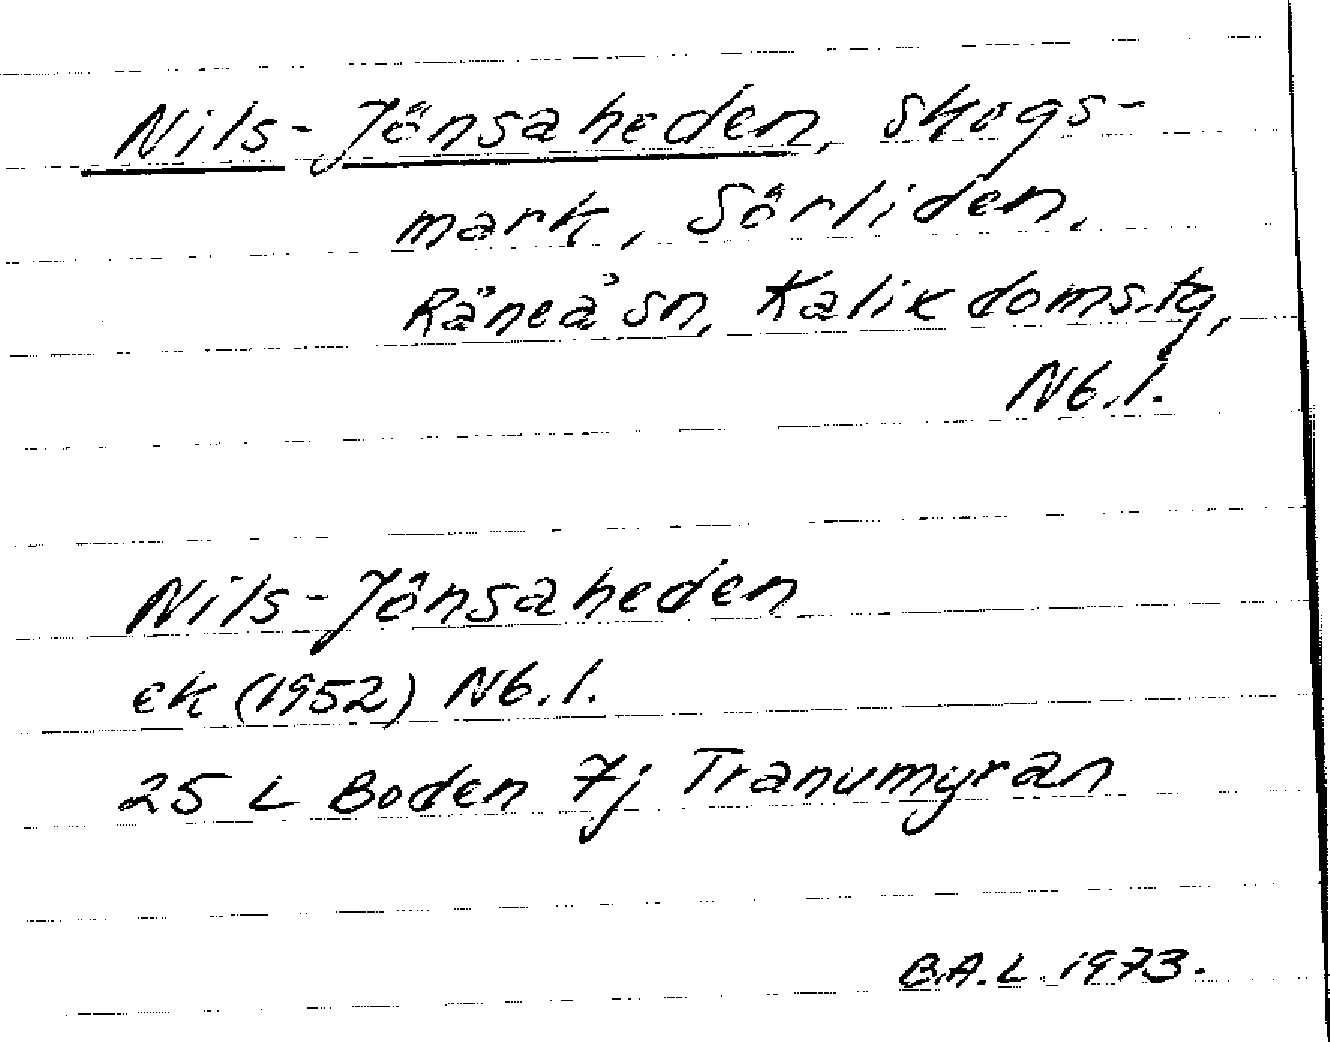 Nils-Jönsaheden, skogs-
mark, Sörliden,
Råneå sn, Kalix doms.tg,
Nb.l.
Nils-Jönsaheden
ek (1952) Nb.l.
25 L Boden 7j Tranumyran
B.A.L. 1973.